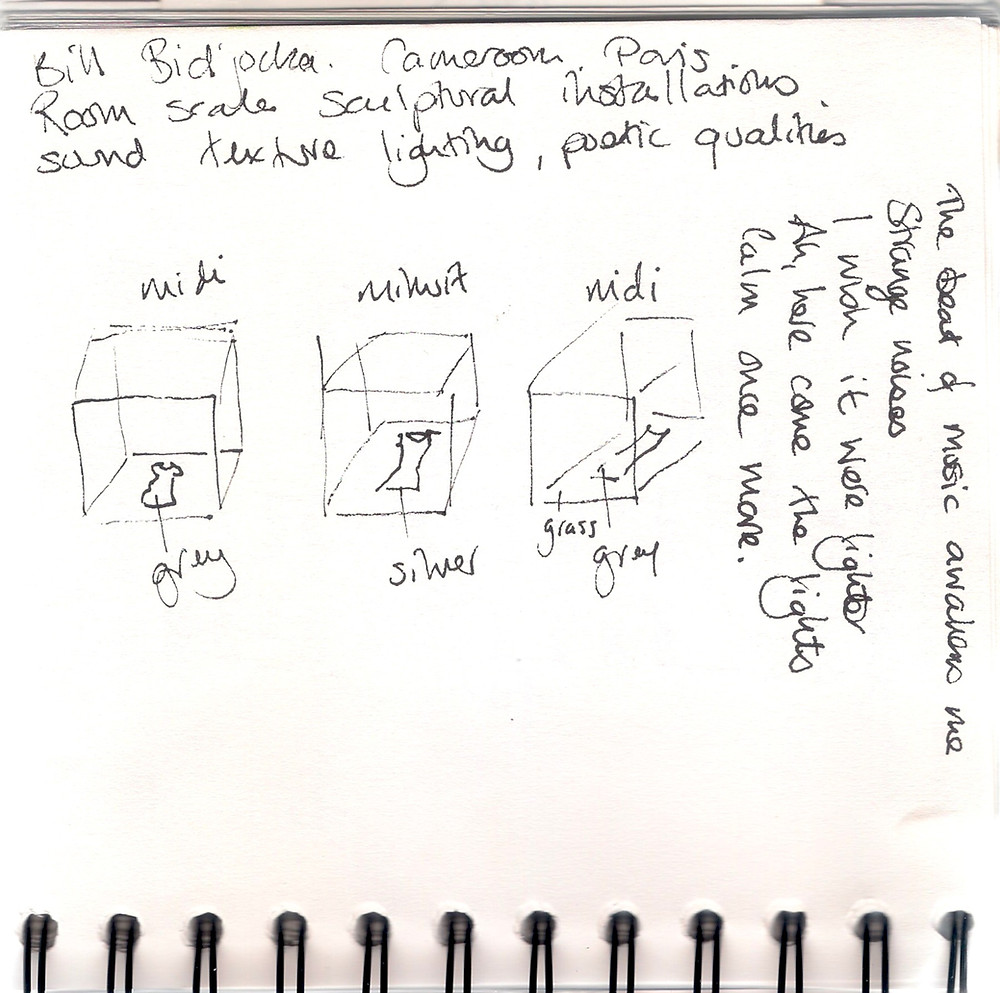 Bill Bidjocka. Cameroom. Paris
Room scale sculptural installations.
sound texture lighting, poetic qualities
midi
minuit
midi
grey
silver
grass
grey
The beat of music awakens me
Strange noises
I wish it were lighter
Ah, here come the lights
Calm once more.